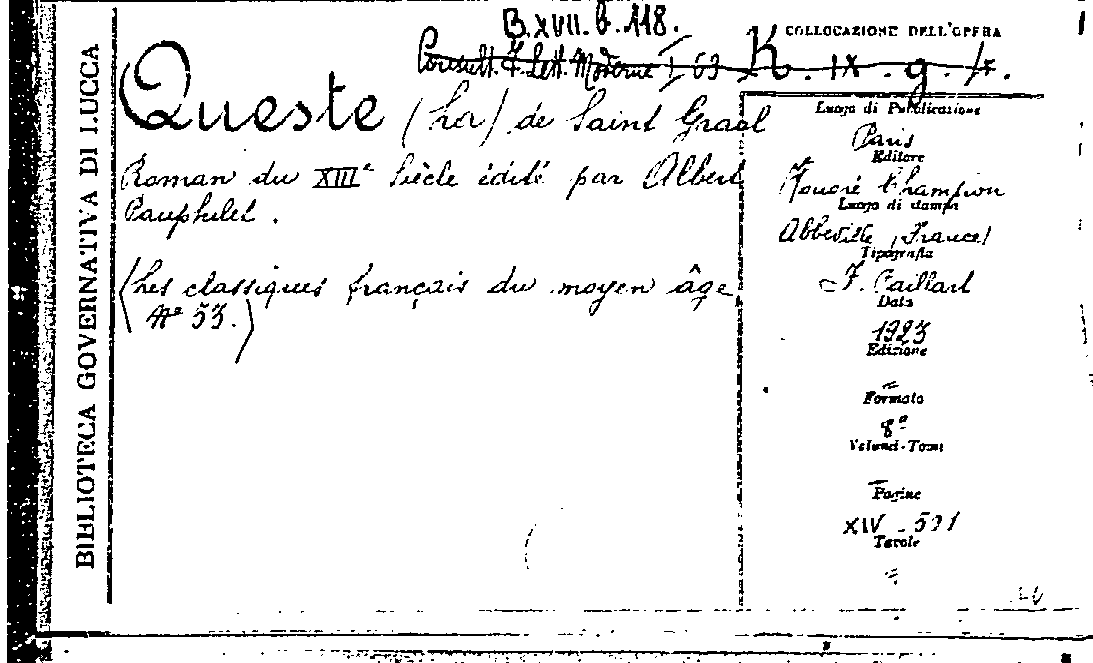 B. XVII. b. 118.
COLLOCAZIONE DELL'OPERA
Consult. F. Lett. Moderne I, 63 K. IX. g.
Queste (La) de Saint Graal
Roman du XIIIe Siècle édité par Albert
Pauphilet.
(Les classiques français du moyen âge
No 33.)
BIBLIOTECA GOVERNATIVA DI LUCCA
Luogo di Pubblicazione
Paris
Editore
Honoré Champion
Luogo di stampa
Abbeville (France)
Tipografia
F. Paillart
Data
1923
Edizione
=
Formato
8o
Volumi-Tomi
Pagine
XIV - 301
Tavole